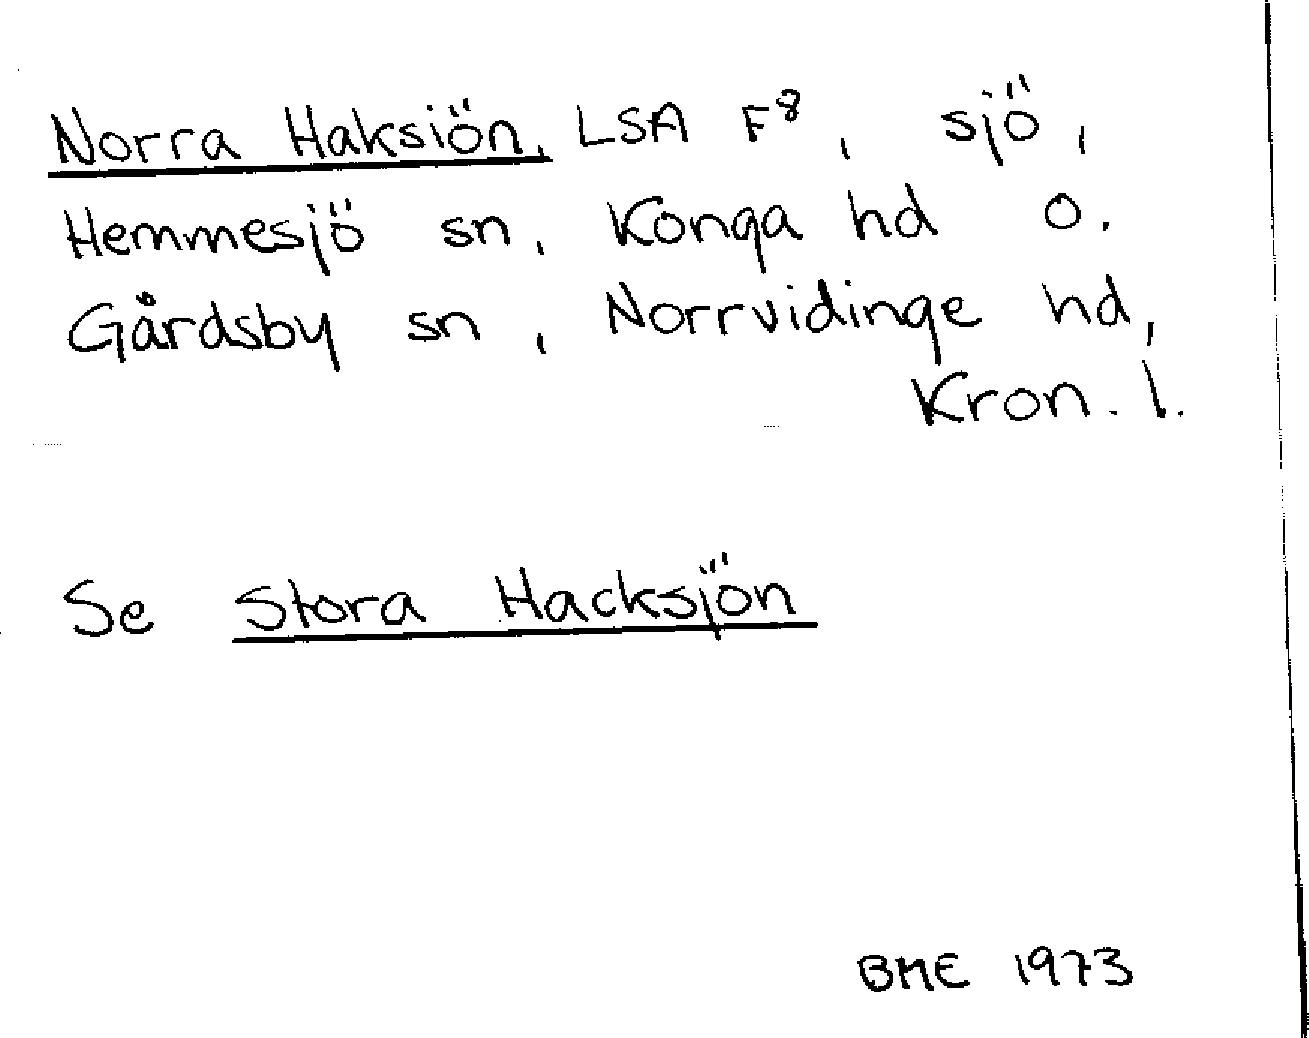 Norra Haksiön, LSA F⁸, sjö,
Hemmesjö sn, Konga hd o.
Gårdsby sn, Norrvidinge hd,
Kron. l.
Se Stora Hacksjön
BME 1973